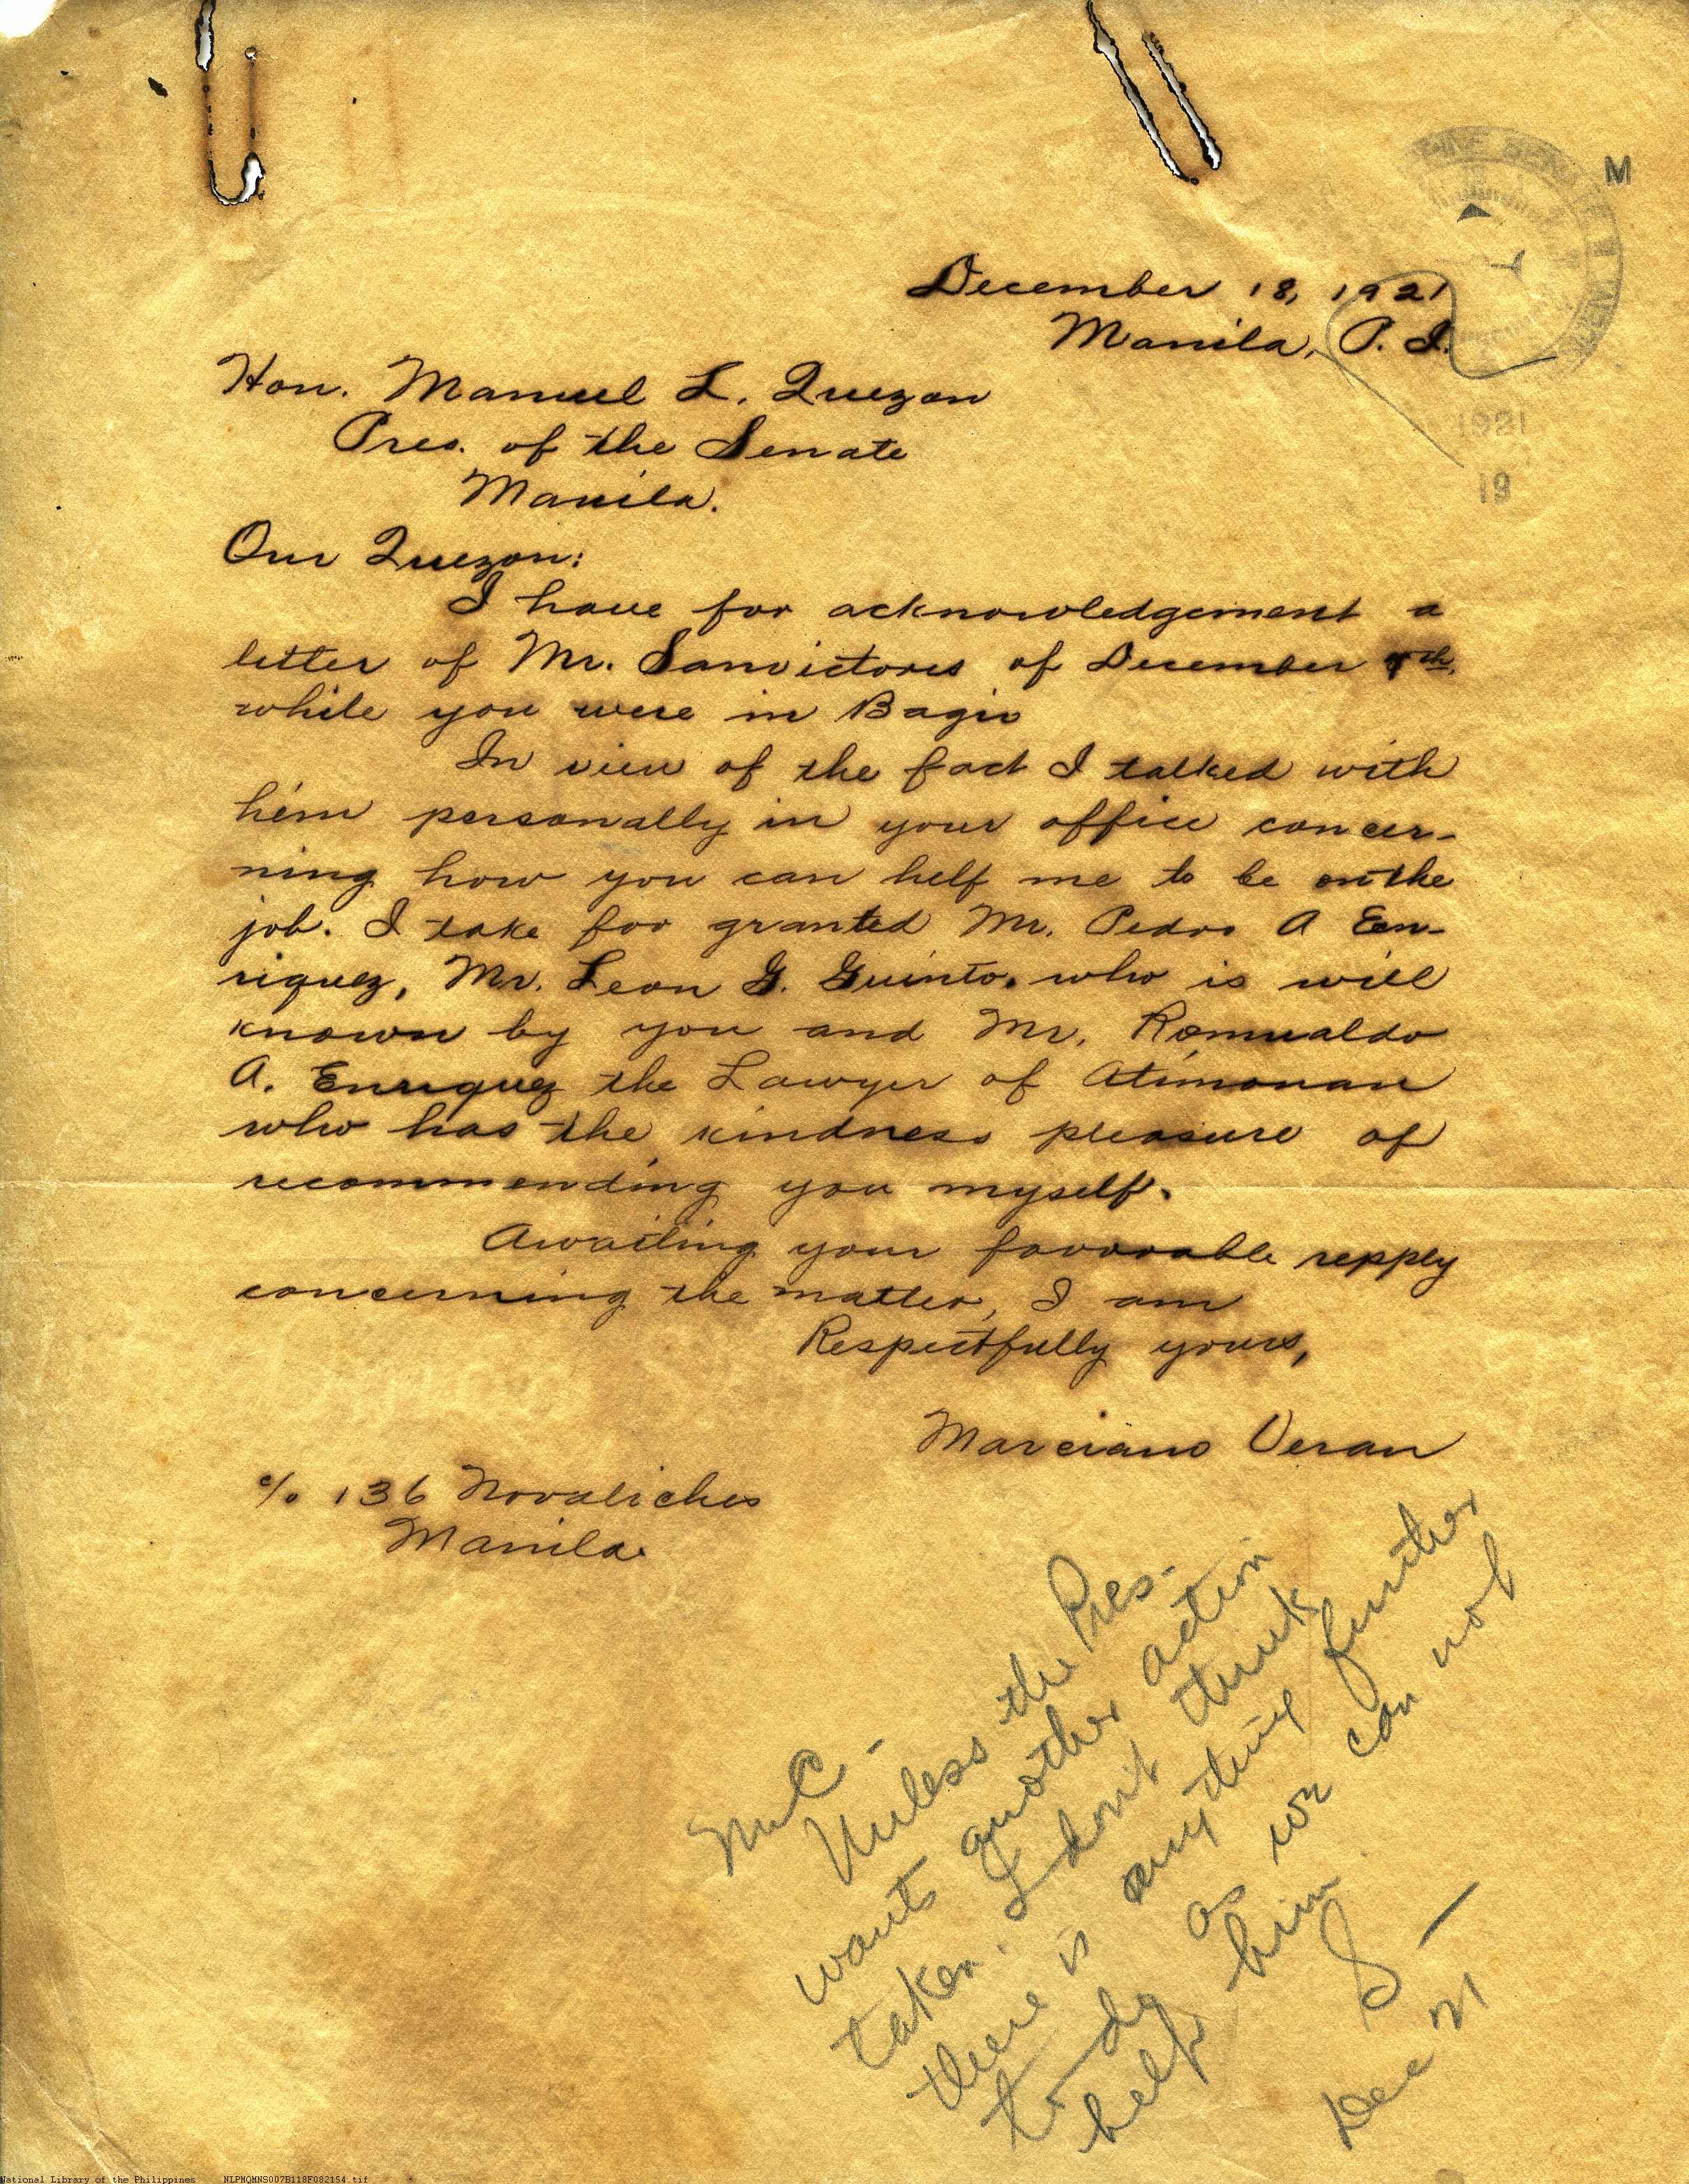 M
December 18, 1921
Manila, P. I.
1921
19
Hon. Manuel L. Quezon
Pres. of the Senate
Manila.
Our Quezon:
I have for acknowledgement a
letter of Mr. Sanvictores of December
while you were in Bagio
In view of the fact I talked with
him personally in your office concer-
ning how you can help me to be on the
job. I take for granted Mr. Pedro A En-
riquez, Mr. Leon G. Guinto, who is well
known by you and Mr. Romualdo
A. Enriquez the Lawyer of Atimonan
who has the kindness pleasure of
recommending you myself.
Awaiting your favorable repply
concerning the matter, I am
Respectfully yours,
Marciano Veran
c/o 136 Novaliches
Manila.
Mc -
Unless the Pres-
wants another action
taken. I don't think
there is anything further
to do as we can not
help him
S -
Dec 21
National Library of the Philippines NLPMQMNS007B118F082154.tif